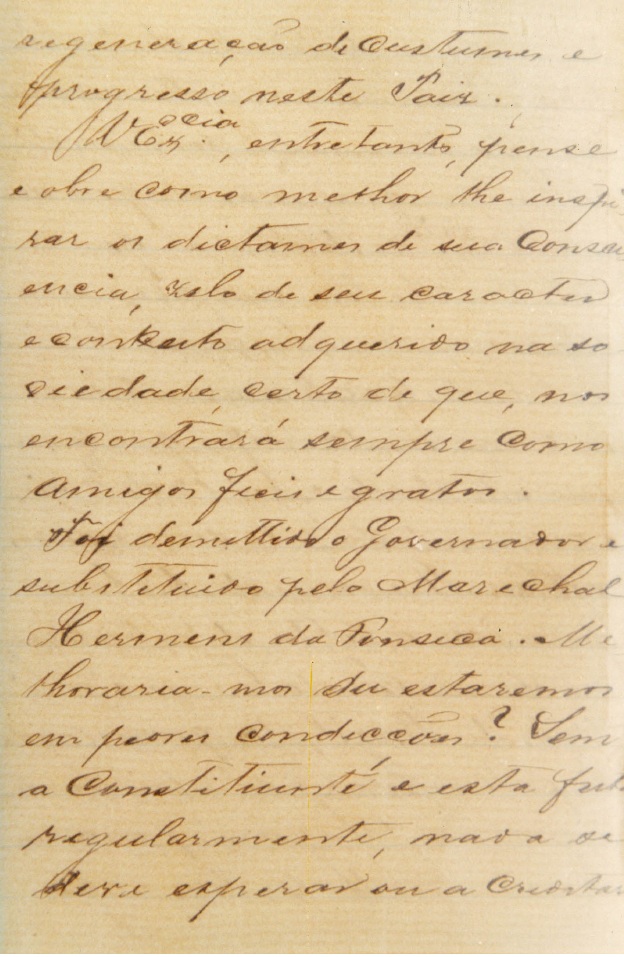 regeneração de Custumes e
progresso neste Paiz.
V Ex.cia, entretanto, pense
e obre como melhor lhe inspi
rar os dictames de sua Consci
encia, zelo de seu caracter
e conceito adquerido na so
ciedade, certo de que, nos
encontrará sempre como
amigos fieis e gratos.
Foi demittido o Governador e
substituido pelo Marechal
Hermens da Fonseca. Me
lhoraria-mos ou estaremos
em peores condicções? Sem
a Constituinte e esta
regularmente, nada se
deve esperar ou acreditar